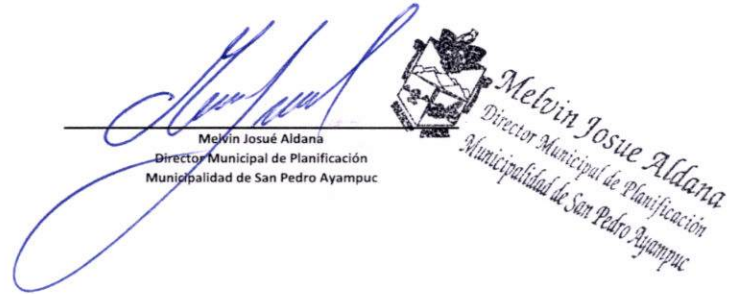 Melvin Josué Aldana
Director Municipal de Planificación
Municipalidad de San Pedro Ayampuc
Melvin Josue Aldana
Director Municipal de Planificación
Municipalidad de San Pedro Ayampuc